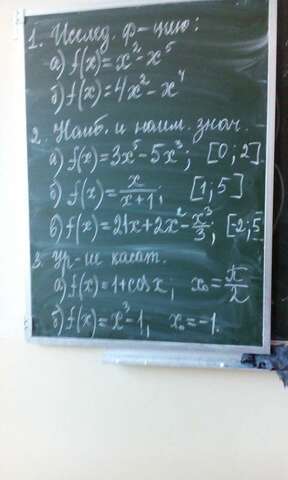 1. Исслед. ф-цию:
а) f(x) = x² - x⁵
б) f(x) = 4x² - x⁴
2. Наиб. и наим. знач.
а) f(x) = 3x⁵ - 5x³; [0; 2]
б) f(x) = x/(x+1); [1; 5]
в) f(x) = 21x + 2x² - x³/3; [-2; 5
3. Ур-ие касат.
а) f(x) = 1 + cos x; x₀ = π/2
б) f(x) = x³ - 1, x₀ = -1.